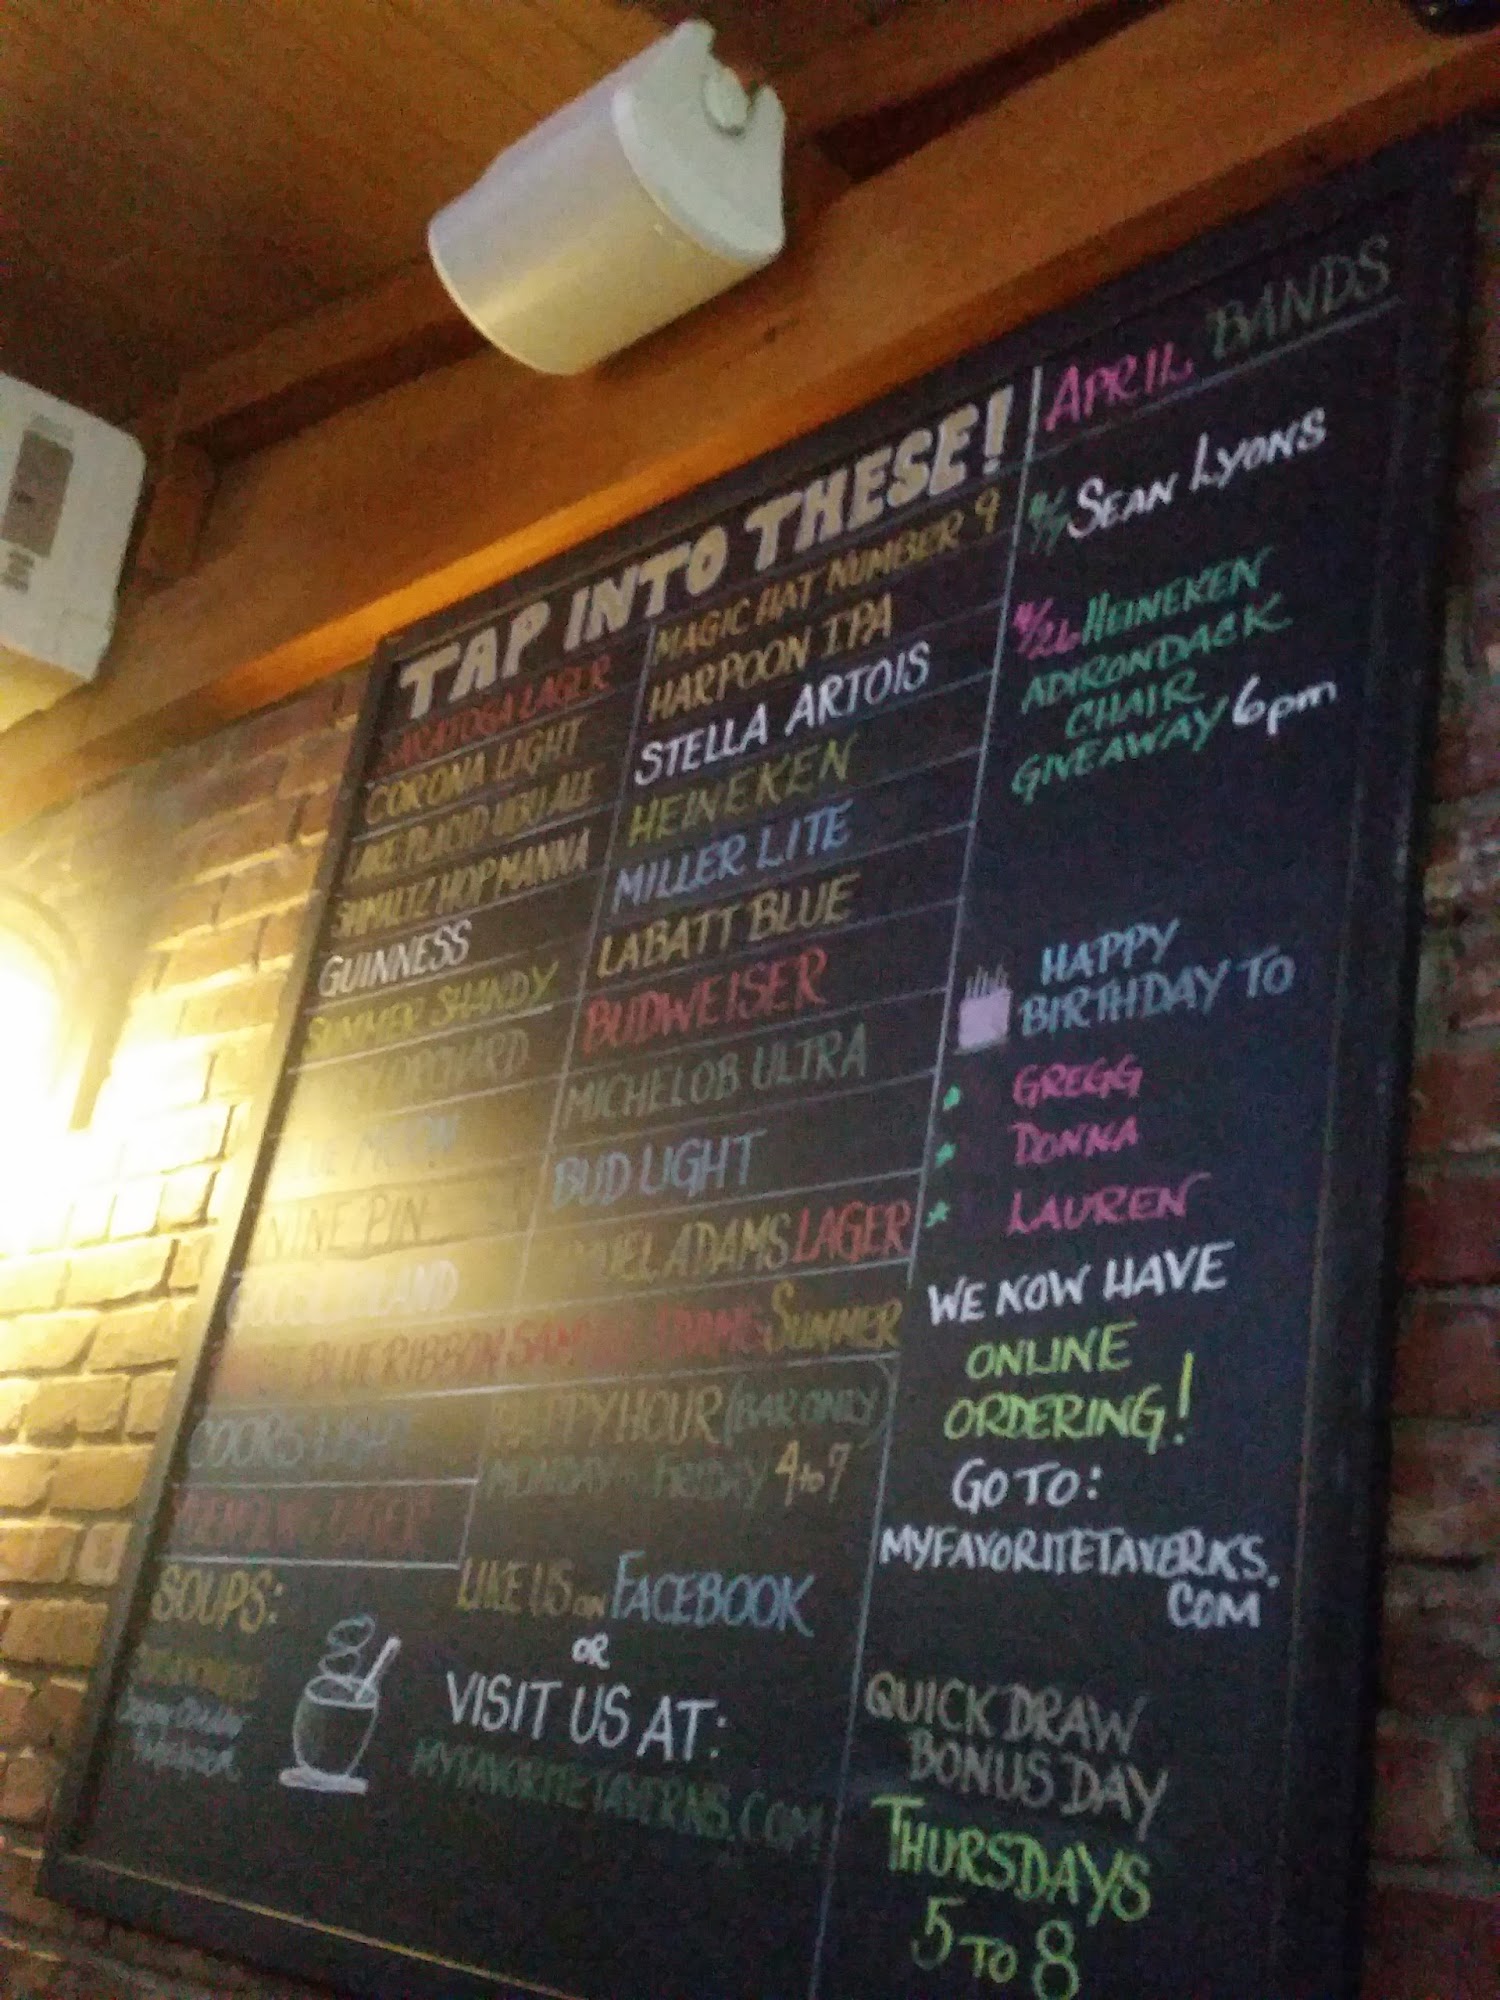 TAP INTO THESE!
SARATOGA LAGER
CORONA LIGHT
LAKE PLACID UBU ALE
SHMALTZ HOP MANNA
GUINNESS
SUMMER SHANDY
ORCHARD
BLUE MOON
NINE PIN
GOOSE ISLAND
BLUE RIBBON
COORS LIGHT
LAGER
MAGIC HAT NUMBER 9
HARPOON IPA
STELLA ARTOIS
HEINEKEN
MILLER LITE
LABATT BLUE
BUDWEISER
MICHELOB ULTRA
BUD LIGHT
SAMUEL ADAMS LAGER
SAMUEL ADAMS SUMMER
HAPPY HOUR (BAR ONLY)
MONDAY - FRIDAY 4 to 7
SOUPS:
LIKE US ON FACEBOOK
OR
VISIT US AT:
MYFAVORITETAVERNS.COM
APRIL BANDS
SEAN LYONS
4/26 HEINEKEN
ADIRONDACK
CHAIR
GIVEAWAY 6pm
HAPPY
BIRTHDAY TO
GREGG
DONNA
LAUREN
WE NOW HAVE
ONLINE
ORDERING!
GO TO:
MYFAVORITETAVERNS.
COM
QUICK DRAW
BONUS DAY
THURSDAYS
5 TO 8